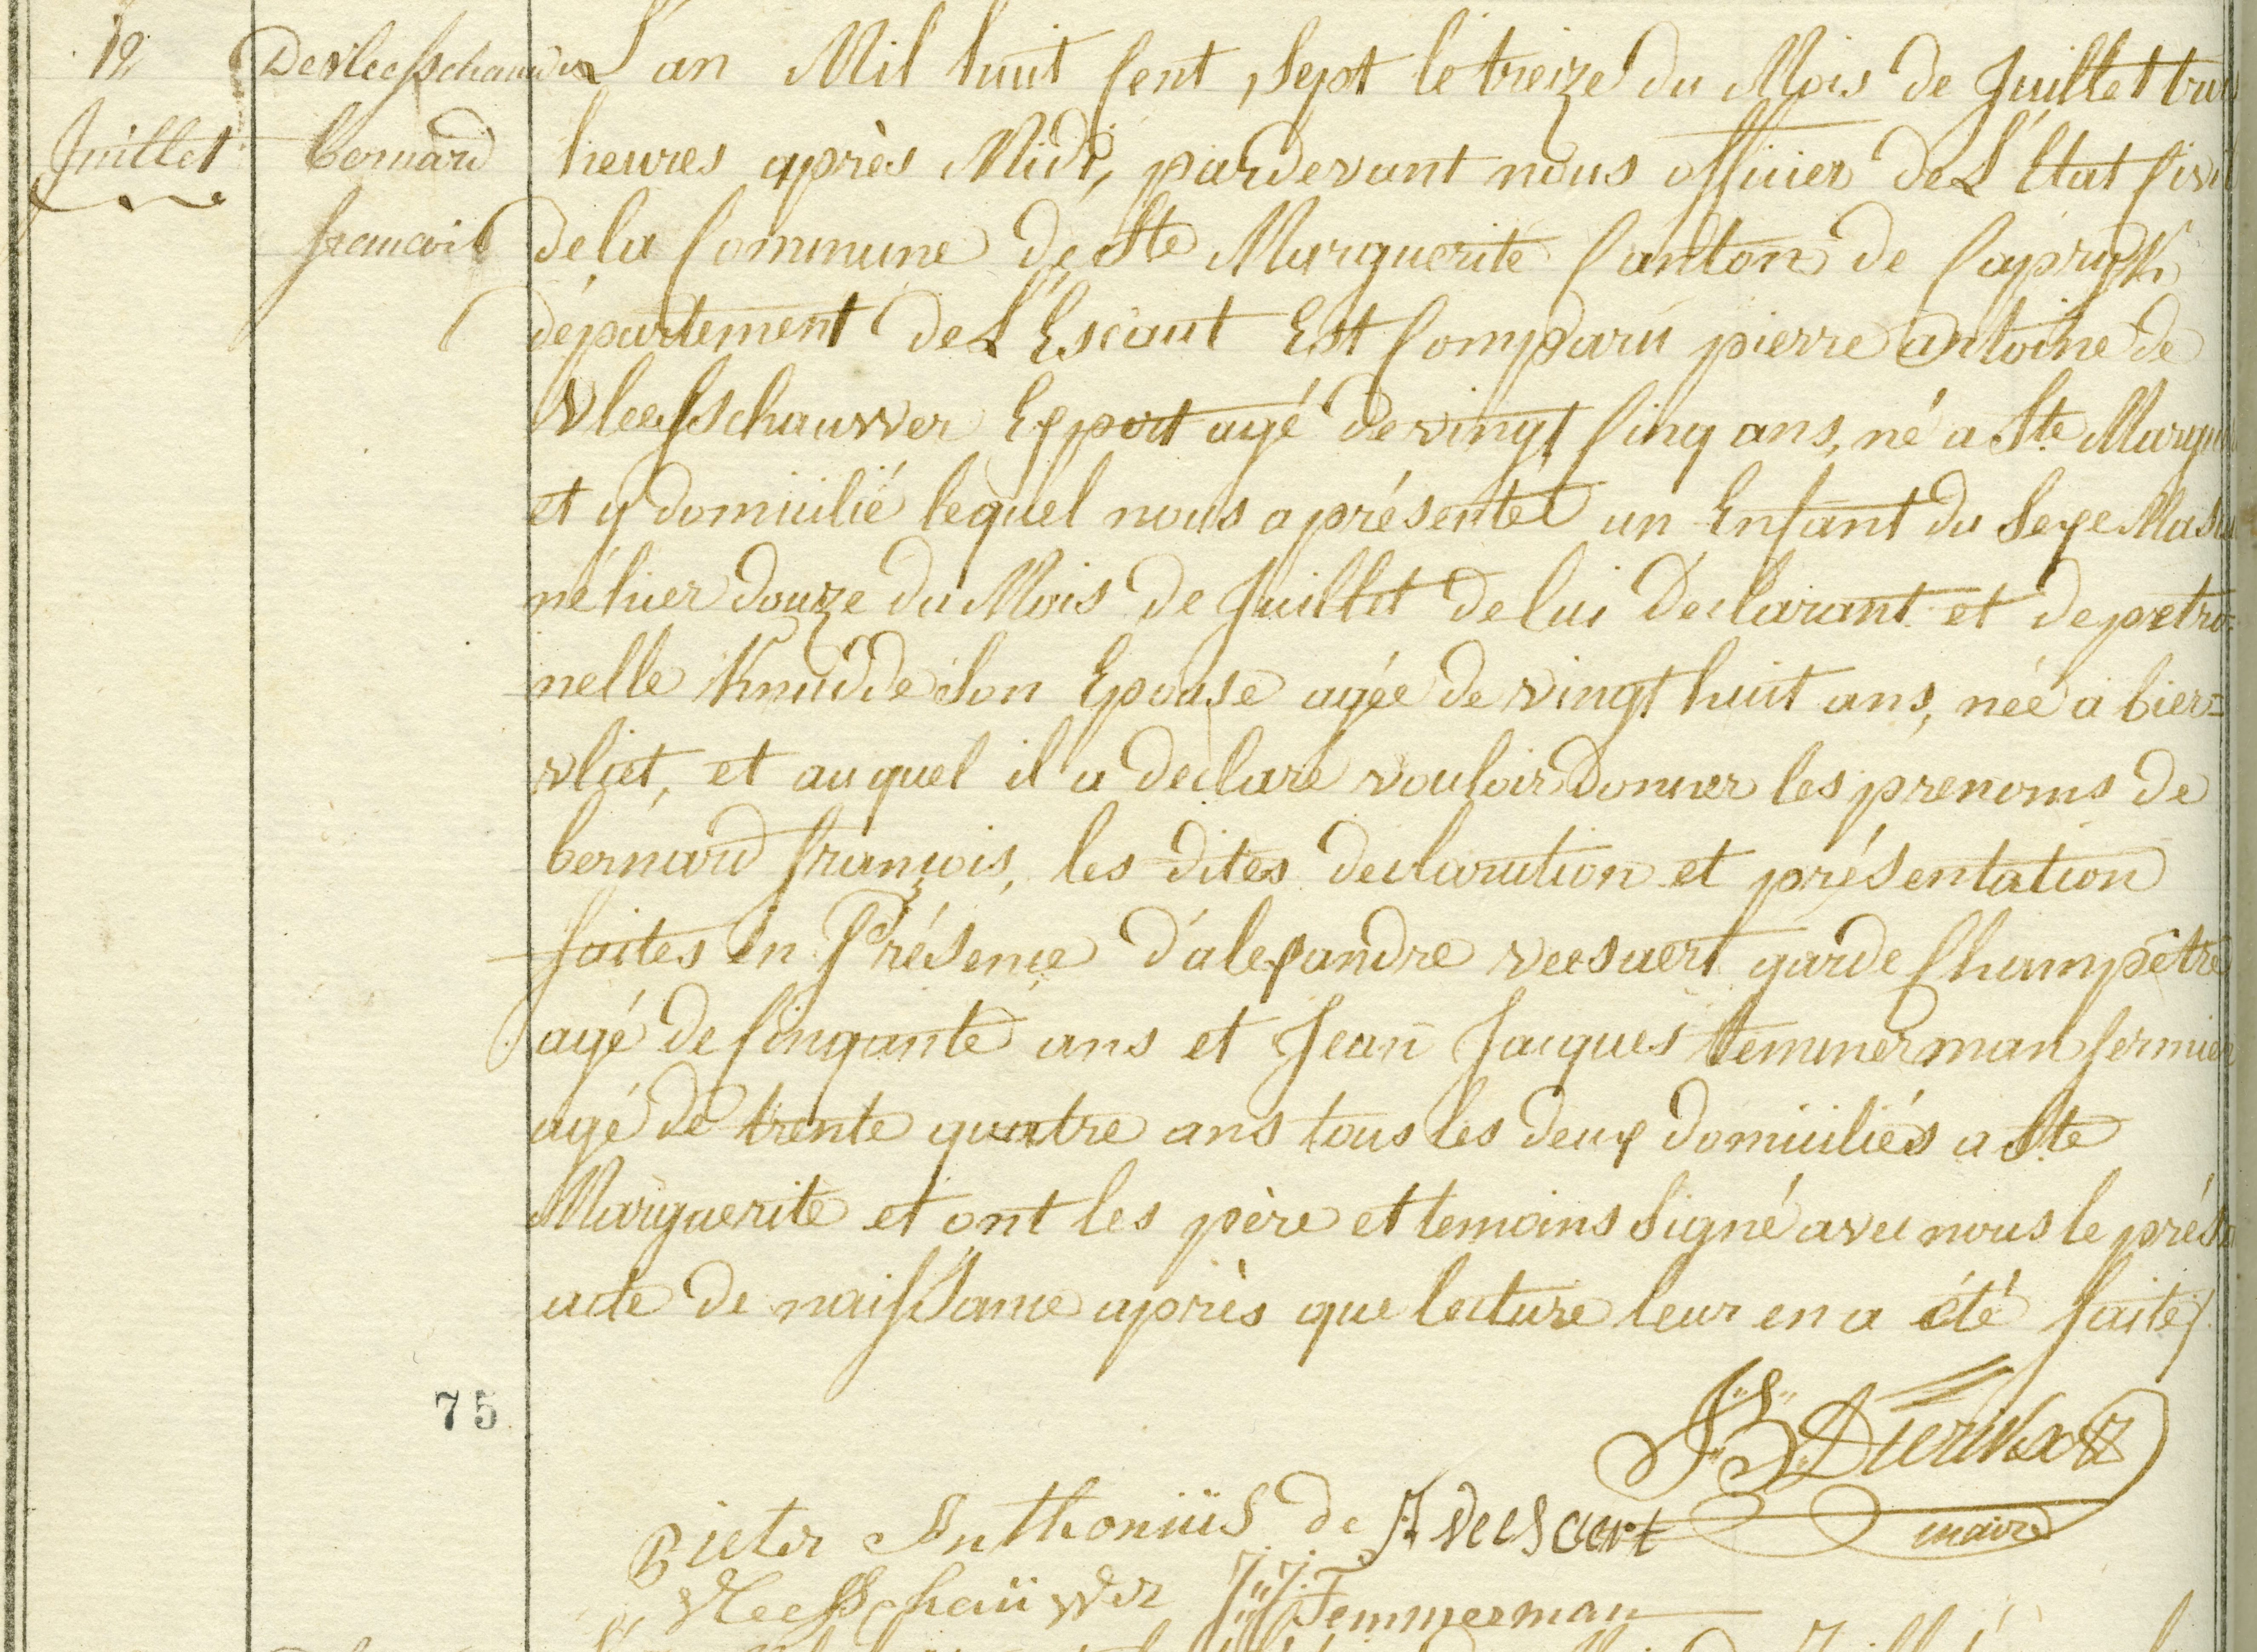 12
Juillet
Devleesschauwer
bernard
francois
L'an Mil huit Cent Sept le treize du Mois de Juillet
heures après Midi, pardevant nous officier de L'Etat Civil
de la Commune de Ste Marguerite Canton de Capryck
département de L'Escaut Est Comparu pierre antoine de
vleesschauwer age de vingt Cinq ans, né a Ste
et y domicilié lequel nous a présenté un Enfant du Sexe
né hier douze du Mois de Juillet de lui Déclarant et de petro-
nelle Knudde Son Epouse agée de vingt huit ans, née a bier=
vliet, et auquel il a declaré vouloir Donner les prenoms de
bernard françois, les dites declaration et présentation
faites en Présence d'alexandre veesaert garde Champêtre
agé de Cinqante ans et Jean Jacques temmerman fermier
agé de trente quatre ans tous les deux domiciliés a Ste
Marguerite et ont les père et temoins Signé avec nous le
acte de naissance après que lecture leur en a été faite
75
maire
Pieter Anthoniüs de
A veesaert
vleesschaüwer
J: J: Temmerman